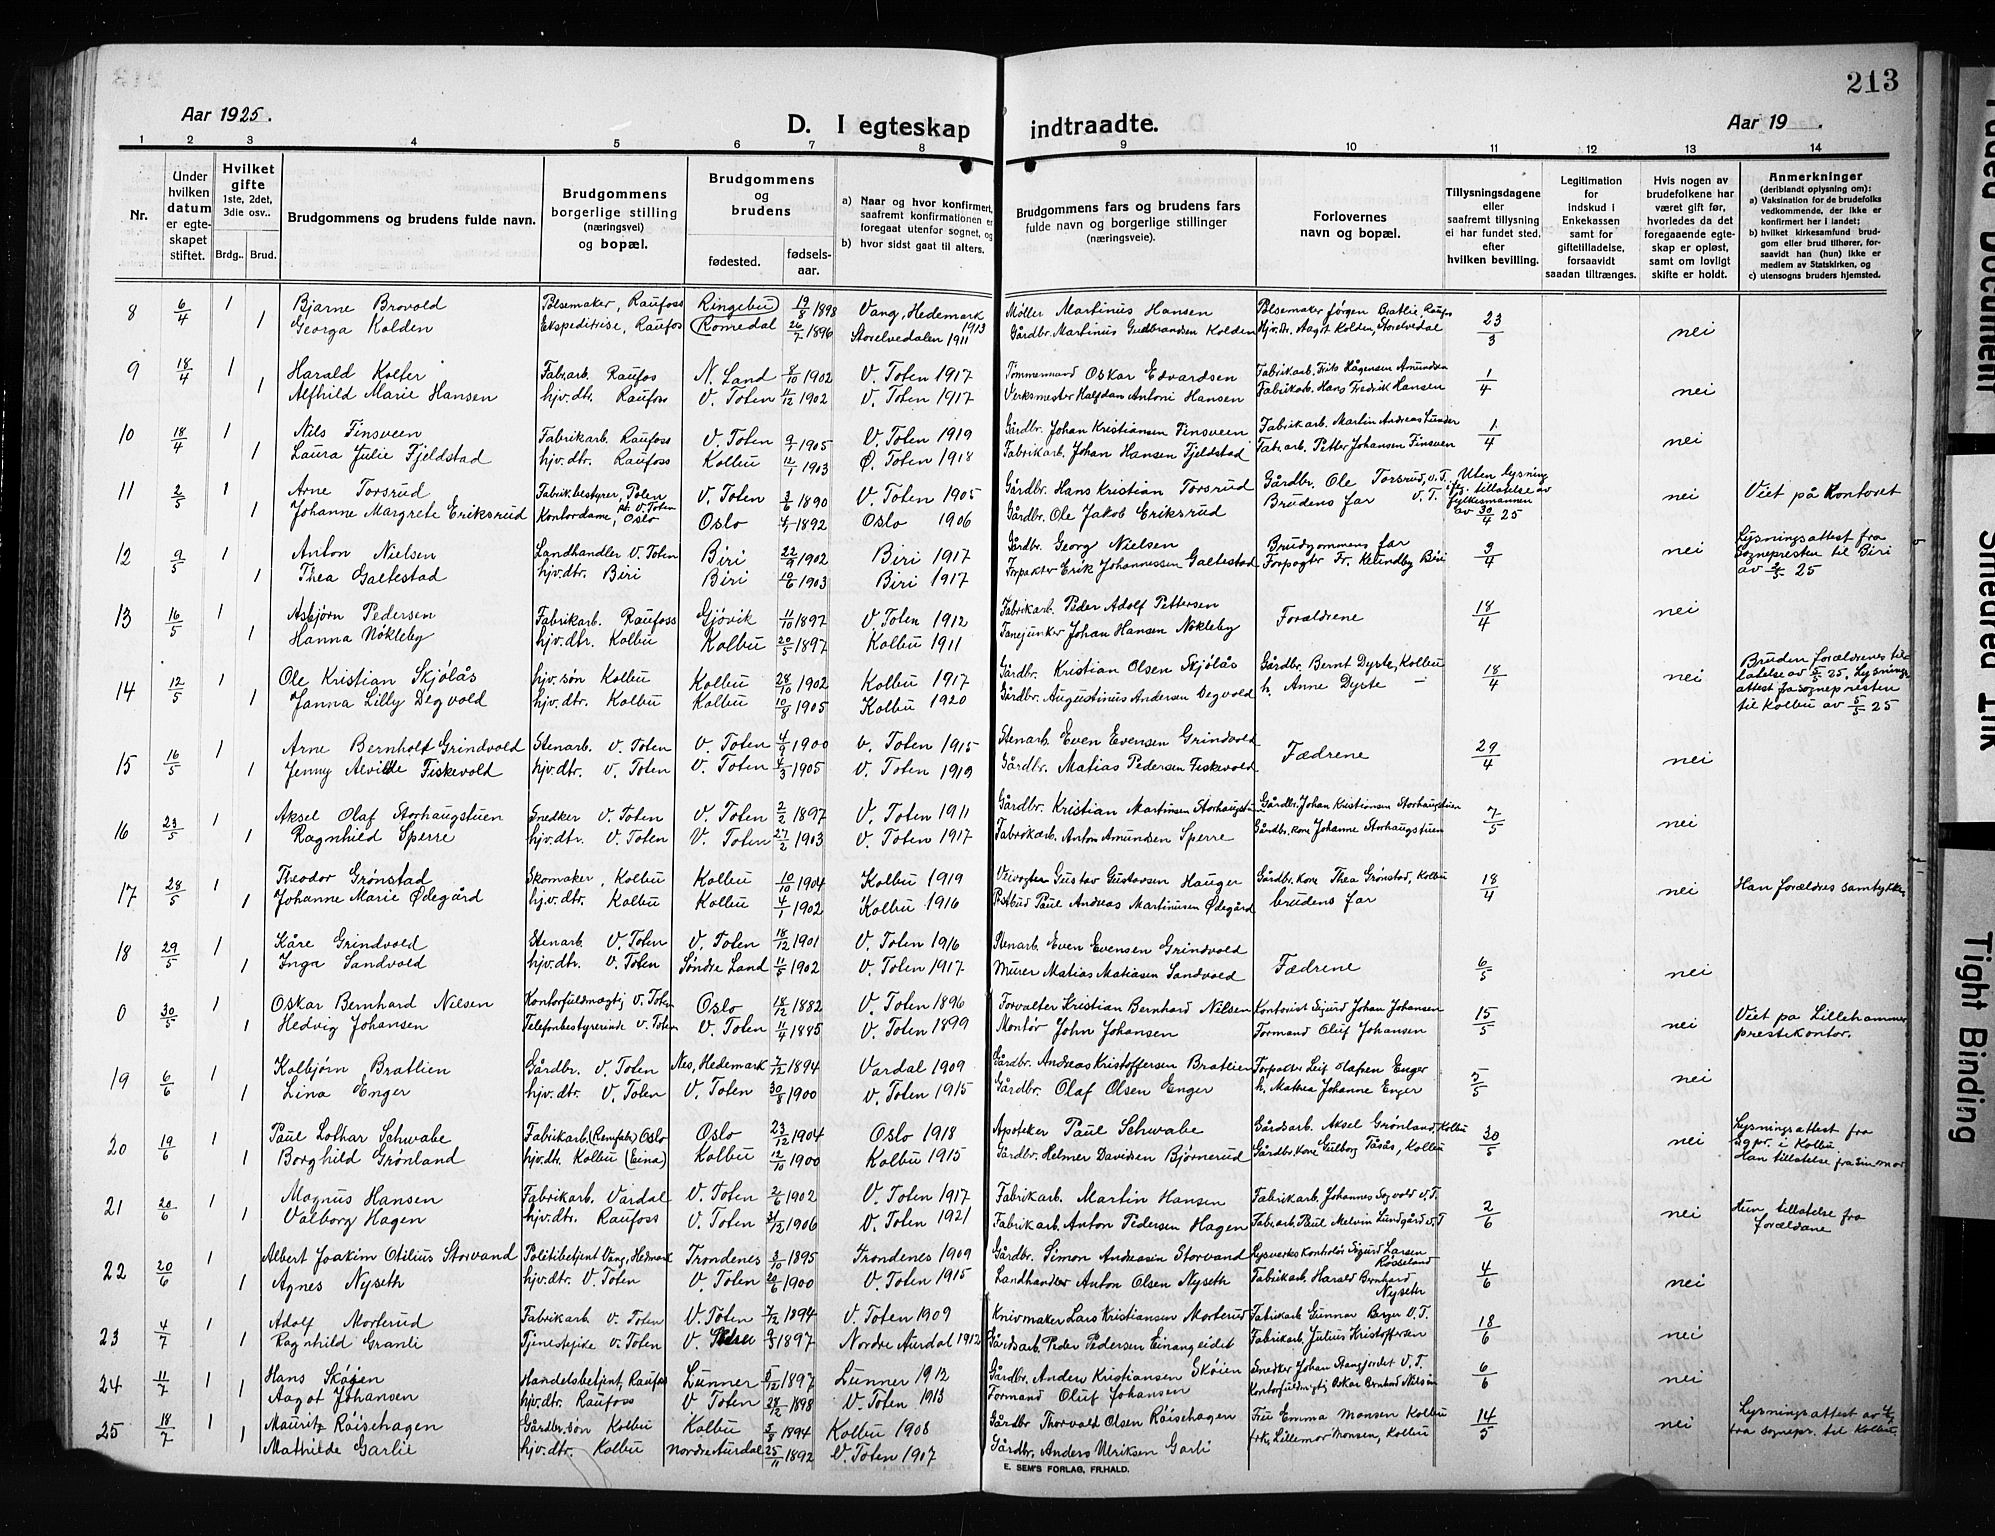 213
Aar 1925.
D. I egteskap indtraadte.
Aar 19 .
1 2 3 4 5 6 7 8 9 10 11 12 13 14
Nr.
Under hvilken datum er egteskapet stiftet.
Hvilket gifte 1ste, 2det, 3die osv..
Brdg.. Brud.
Brudgommens og brudens fulde navn.
Brudgommens borgerlige stilling (næringsvei) og bopæl.
Brudgommens og brudens
fødested. fødselsaar.
a) Naar og hvor konfirmert, saafremt konfirmationen er foregaat utenfor sognet, og
b) hvor sidst gaat til alters.
Brudgommens fars og brudens fars fulde navn og borgerlige stillinger (næringsveie).
Forlovernes navn og bopæl.
Tillysningsdagene eller saafremt tillysning ei har fundet sted, efter hvilken bevilling.
Legitimation for indskud i Enkekassen samt for giftetilladelse, forsaavidt saadan tiltrænges.
Hvis nogen av brudefolkene har været gift før, hvorledes da det foregaaende egteskap er opløst, samt om lovligt skifte er holdt.
Anmerkninger (deriblandt oplysning om): a) Vaksination for de brudefolks vedkommende, der ikke er konfirmert her i landet; b) hvilket kirkesamfund brudgom eller brud tilhører, forsaavidt han (hun) ikke er medlem av Statskirken, og c) utensogns bruders hjemsted.
8 6/4 1 Bjarne Brovold Pølsemaker, Raufoss Ringebu 19/8 1898 Vang, Hedemark 1913 Møller Martinus Hansen Pølsemaker Jørgen Bratlie, Raufos 23/3 nei
1 Georga Kolden Ekspeditrise, Raufos Romedal 26/7 1896 Storelvedalen 1911 Gårdbr. Martinus Gudbrandsen Kolden Hjv.dtr. Aagot Kolden, Storelvedal
9 18/4 1 Harald Kolter Fab.arb. Raufos N. Land 8/10 1902 V. Toten 1917 Tømmermand Oskar Edvardsen Fabrikarb. Frits Hågensen Amundsen 1/4 nei
1 Alfhild Marie Hansen hjv.dtr. Raufoss V. Toten 1902 V. Toten 1917 Verksmester Halfdan Antoni Hansen Fabrikab. Hans Fredrik Hansen
10 18/4 1 Nils Finsveen Fabrikarb. Raufoss V. Toten 9/1 1905 V. Toten 1919 Gårdbr. Johan Kristiansen Finsveen Fabrikarb. Martin Andreas Lunder 1/4 nei
1 Laura Julie Fjeldstad hjv.dtr. Raufoss Kolbu 12/1 1903 Ø. Toten 1918 Fabrikarb. Johan Hansen Fjeldstad Fab.arb. Petter Johansen Finsveen
11 2/5 1 Arne Torsrud Fabrik.bestyrer, Polen pt. V. Toten V. Toten 3/6 1890 V. Toten 1905 Gårdbr. Hans Kristian Torsrud Gårdbr. Ole Torsrud, V.T. Uten lysning tillatelse av Fylkesmannen av 30/4 25 nei Viet på Kontoret
1 Johanne Margrete Eriksrud Kontordame, Oslo Oslo 1892 Oslo 1906 Gårdbr. Ole Jakob Eriksrud Brudens far V.T.
12 9/5 1 Anton Nielsen Landhandler V. Toten Biri 22/9 1902 Biri 1917 Gårdbr. Georg Nielsen Brudgommens far nei Lysningsattest fra Sognepresten til Biri av 2/5 25
1 Thea Galtestad hjv.dtr. Biri Biri 10/6 1903 Biri 1917 Forpakter Erik Johannessen Galtestad Forpagter Fr. Kelundby Biri
13 16/5 1 Asbjørn Pedersen Fabrikarb. Raufoss Gjøvik 11/10 1897 V. Toten 1912 Fabrikarb. Peder Adolf Pettersen Forældrene 18/4 nei
1 Hanna Nøkleby hjv.dtr. Kolbu Kolbu 20/5 1897 Kolbu 1911 Johan Hansen Nøkleby
14 12/5 1 Ole Kristian Skjølås hjv.søn Kolbu Kolbu 28/10 1902 Kolbu 1917 Gårdbr. Kristian Olsen Skjølås Gårdbr. Bernt Dyrte, Kolbu 18/4 nei Bruden forældrenes tillatelse av 5/5 25, Lysningsattest fra sognepresten til Kolbu av 5/5 25
1 Janna Lilly Degvold hjv.dtr. Kolbu Kolbu 10/8 1905 Kolbu 1920 Gårdbr. Augustinus Andersen Degvold h. Anne Dyrte —
15 16/5 1 Arne Bernholt Grindvold Stenarb. V. Toten V. Toten 4/9 1900 V. Toten 1915 Stenarb. Even Evensen Grindvold Fædrene 29/4 nei
1 Jenny Alvilde Fiskevold hjv.dtr. V. Toten V. Toten 4/3 1905 V. Toten 1919 Gårdbr. Matias Pedersen Fiskevold
16 23/5 1 Aksel Olaf Storhaugstuen Snedker V. Toten V. Toten 2/2 1897 V. Toten 1911 Gårdbr. Kristian Martinsen Storhaugstuen Gårdbr. Johan Kristiansen Storhaugstuen 7/5 nei
1 Ragnhild Sperre hjv.dtr. V. Toten V. Toten 27/2 1903 V. Toten 1917 Fabrikarb. Anton Amundsen Sperre Gårdbr. kone Johanne Storhaugstuen
17 28/5 1 Theodor Grønstad Skomaker, Kolbu Kolbu 10/10 1904 Kolbu 1919 Veivogter Gustav Gustavsen Hauger Gårdbr. kone Thea Grønstad, Kolbu 18/4 nei Han forældres samtykke
1 Johanne Marie Ødegård hjv.dtr. Kolbu Kolbu 4/1 1902 Kolbu 1916 Postbud Paul Andreas Martinusen Ødegård brudens far
18 29/5 1 Kåre Grindvold Stenarb. V. Toten V. Toten 18/12 1901 V. Toten 1916 Stenarb. Even Evensen Grindvold Fædrene 6/5 nei
1 Inga Sandvold hjv.dtr. V. Toten Søndre Land 11/5 1902 V. Toten 1917 Murer Matias Matiasen Sandvold
0 30/5 1 Oskar Bernhard Nilsen Kontorfuldmægtig V. Toten Oslo 18/12 1882 V. Toten 1896 Forvalter Kristian Bernhard Nilsen Kontorist Sigurd Johan Johansen 15/5 nei Viet på Lillehammer prestekontor.
1 Hedvig Johansen Telefonbestyrerinde V. Toten V. Toten 11/4 1885 V. Toten 1899 Montør John Johansen Formand Oluf Johansen
19 6/6 1 Kolbjørn Bratlien Gårdbr. V. Toten Nes, Hedemark 7/12 1894 Vardal 1909 Gårdbr. Andreas Kristoffersen Bratlien Forpakter Leif Olafsen Enger 5/5 nei
1 Lina Enger hjv.dtr. V. Toten V. Toten 30/8 1900 V. Toten 1915 Gårdbr. Olaf Olsen Enger h. Mathea Johanne Enger
20 19/6 1 Paul Lothar Schwabe Fabrikarb. (Remfabr.) Oslo Oslo 23/12 1904 Oslo 1918 Apoteker Paul Schwabe Gårdsarb. Aksel Grønland, Kolbu 30/5 nei Lysningsattest fra sgpr. i Kolbu Han tillatelse fra sin mor
1 Borghild Grønland hjv.dtr. Kolbu (Eina) Kolbu 12/10 1900 Kolbu 1915 Gårdbr. Helmer Davidsen Bjørnerud Gårdbr. kone Gulborg Tåsås, Kolbu
21 20/6 1 Magnus Hansen Fabrikarb. Vardal V. Toten 2/6 1902 V. Toten 1917 Fabrikarb. Martin Hansen Fabrikarb. Johannes Sogvold V.T. 2/6 nei Hun tillatelse fra forældrene
1 Valborg Hagen hjv.dtr. Raufoss V. Toten 31/12 1906 V. Toten 1921 Fabrikarb. Anton Pedersen Hagen Fabr.arb. Paul Melvin Lundgård V.T
22 20/6 1 Albert Joakim Otilius Storvand Politibetjent Vang, Hedmark Trondenes 3/10 1895 Trondenes 1909 Gårdbr. Simon Andreasin Storvand Lysverks Kontrolør Sigurd Larsen Røsseland 4/6 nei
1 Agnes Nyseth hjv.dtr. V. Toten V. Toten 20/6 1900 V. Toten 1915 Landhandler Anton Olsen Nyseth Fabrikarb. Harald Bernhard Nyseth
23 4/7 1 Adolf Morterud Fabrikarb. V. Toten V. Toten 7/12 1894 V. Toten 1909 Knivmaker Lars Kristiansen Morterud Fabrikarb. Gunnar Berger V.T. 18/6 nei
1 Ragnhild Granli Tjenestepike V. Toten V. 1897 Nordre Aurdal 1912 Gårdsarb. Peder Pedersen Einangeidet Fabrikarb. Julius Kristoffersen
24 11/7 1 Hans Skøien Handelsbetjent, Raufos Lunner 5/12 1897 Lunner 1912 Gårdbr. Anders Kristiansen Skøien Snedker Johan Stangjordet V.T. 6/6 nei
1 Aagot Johansen hjv.dtr. Raufoss V Toten 28/2 1898 V. Toten 1913 Formand Oluf Johansen Kontorfuldmægtig Oskar Bernhard Nilsen
25 18/7 1 Mauritz Røisehagen Gårdbr. søn Kolbu Kolbu 3/8 1894 Kolbu 1908 Gårdbr Thorvald Olsen Røisehagen Fru Emma Monsen Kolbu 14/5 nei Lysningsattest av fra sognepr. til Kolbu.
1 Mathilde Garlie hjv.dtr. Kolbu Nordre Aurdal 25/11 1892 V. Toten 1907 Gårdbr. Anders Ulriksen Garli frk. Lillemor Monsen, Kolbu
E. SEM'S FORLAG, FR.HALD.
Faded Document
Smeared Ink
Tight Binding